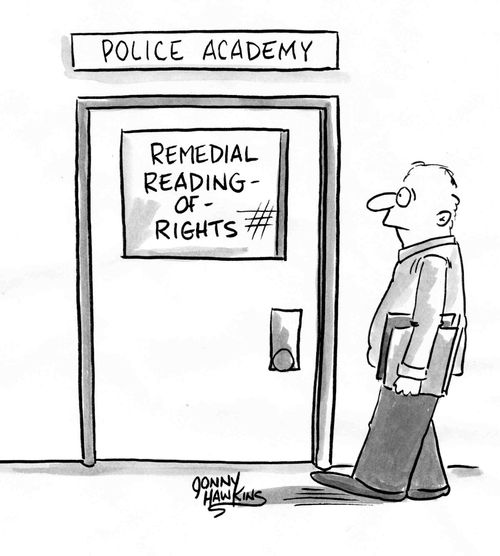 POLICE ACADEMY
REMEDIAL
READING-
OF-
RIGHTS
JONNY
HAWKINS